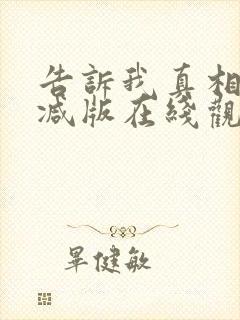 告訴我真相
减版在綫觀
畢健敏